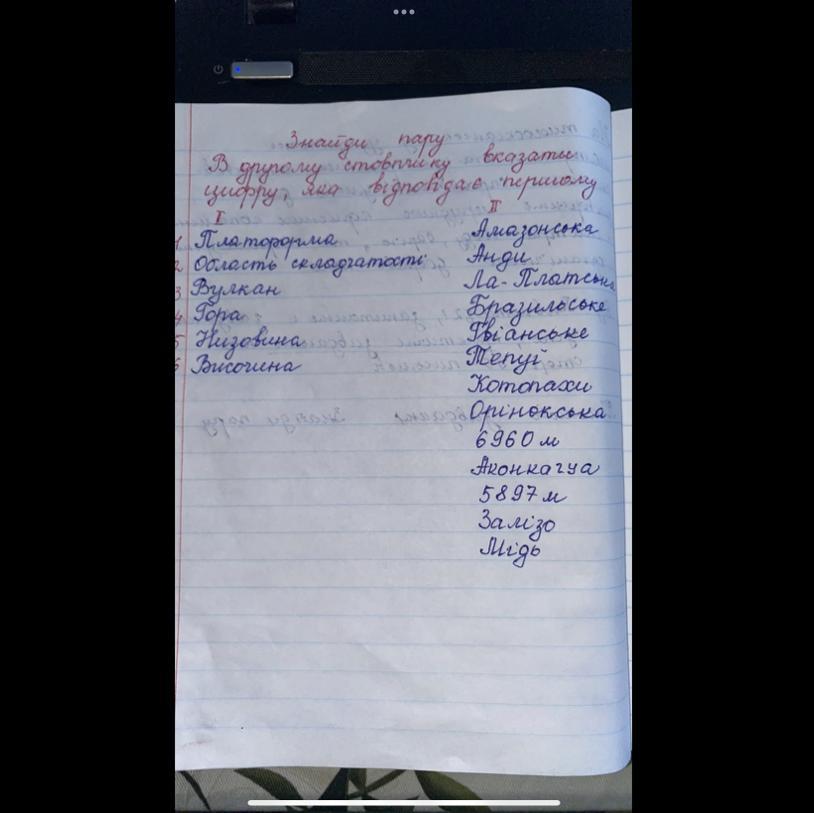 Знайди пару
В другому стовпчику вказати
цифру, яка відповідає першому
I II
1 Платформа Амазонська
2 Область складчатості Анди
3 Вулкан Ла-Платська
4 Гора Бразильське
5 Низовина Гвіанське
6 Височина Тепуї
Котопахи
Орінокська
6960 м
Аконкагуа
5897 м
Залізо
Мідь